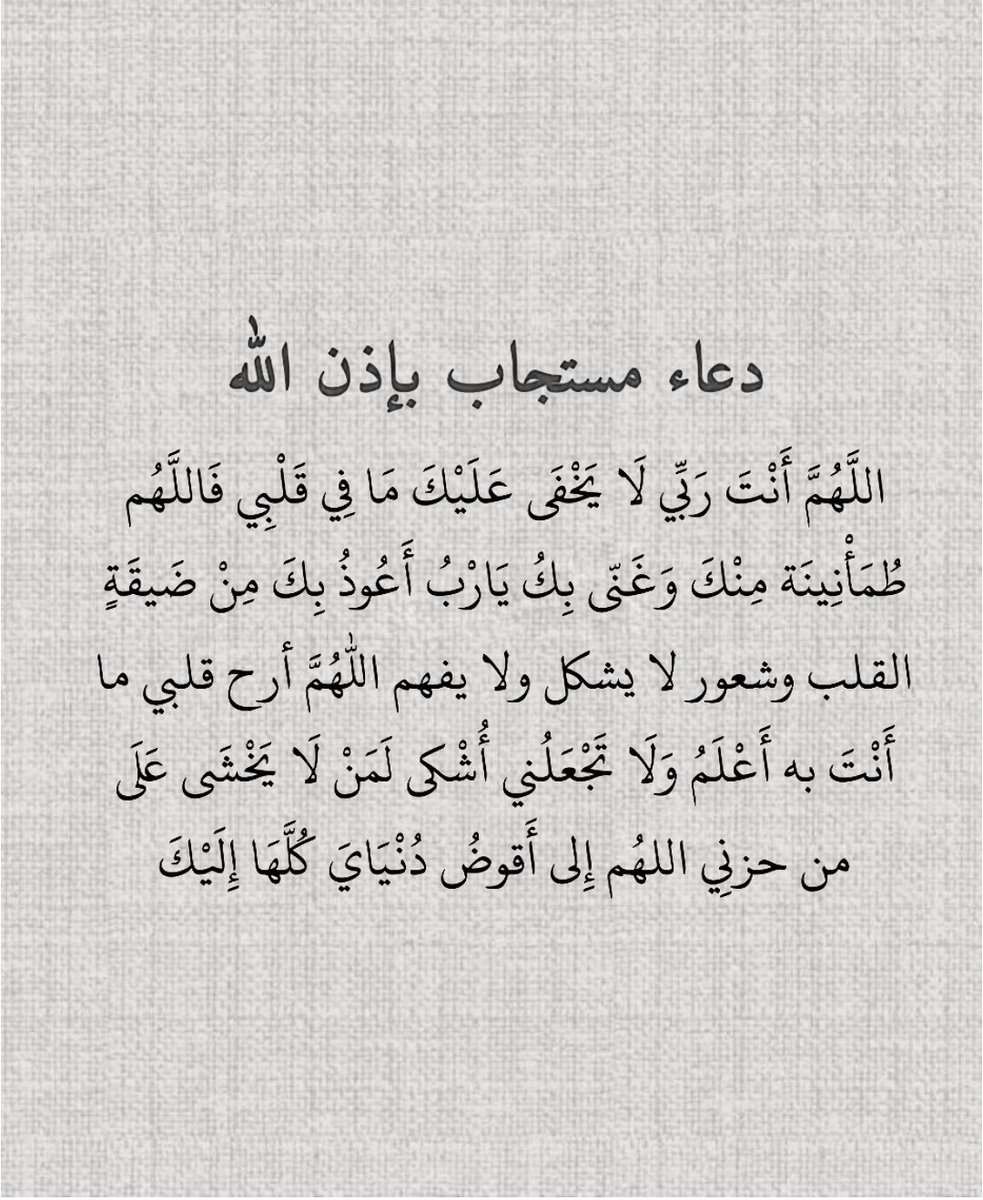 دعاء مستجاب بإذن الله
اللَّهُمَّ أَنْتَ رَبِّي لَا يَخْفَى عَلَيْكَ مَا فِي قَلْبِي فَاللَّهُم
طُمَأْنِينَة مِنْكَ وَغَنّى بِكُ يَارْبُ أَعُوذُ بِكَ مِنْ ضَيقَةٍ
القلب وشعور لا يشكل ولا يفهم اللَّهُمَّ أرح قلبي ما
أَنْتَ به أَعْلَمُ وَلَا تَجْعَلُني أُشْكى لَمَنْ لَا يَخْشَى عَلَى
من حزنِي اللهُم إِلى أَقوضُ دُنْيَايَ كُلَّهَا إِلَيْكَ